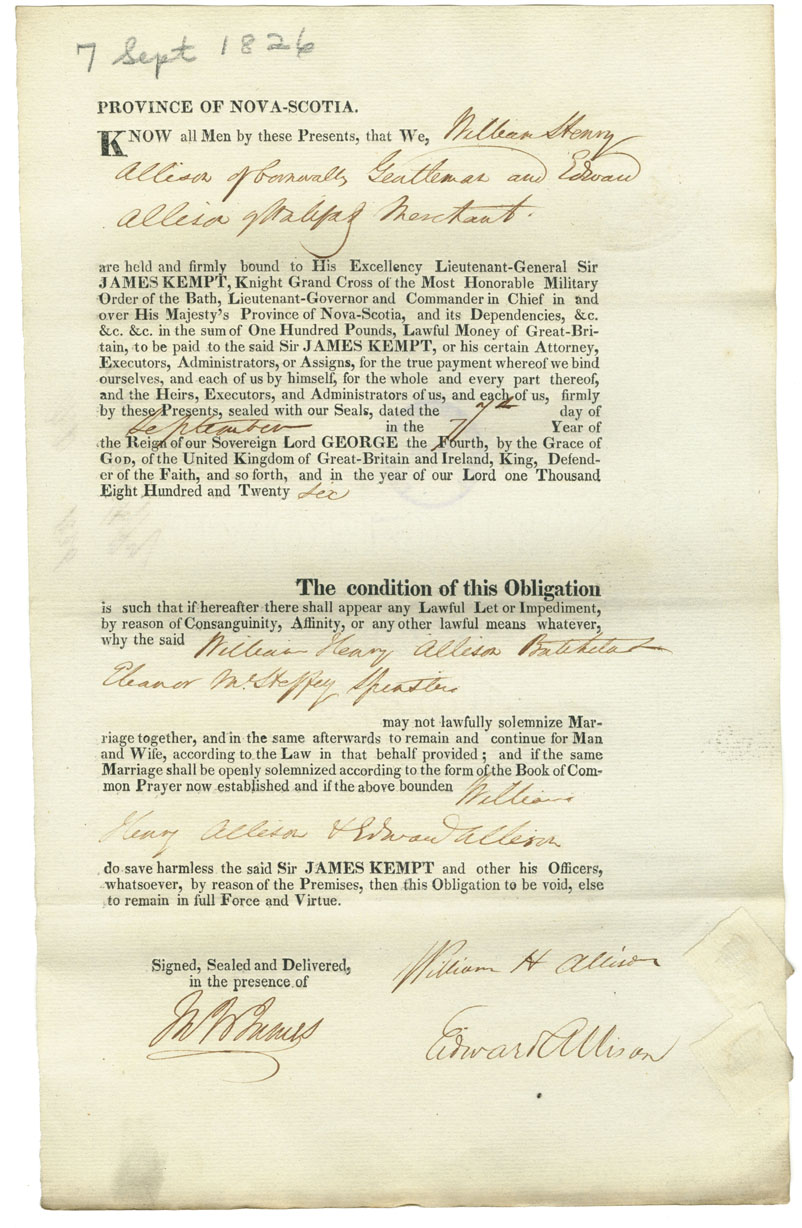 7 Sept 1826
PROVINCE OF NOVA-SCOTIA.
KNOW all Men by these Presents, that We, William Henry
Allison of Cornwallis Gentleman and Edward
Allison of Halifax Merchant.
are held and firmly bound to His Excellency Lieutenant-General Sir
JAMES KEMPT, Knight Grand Cross of the Most Honorable Military
Order of the Bath, Lieutenant-Governor and Commander in Chief in and
over His Majesty's Province of Nova-Scotia, and its Dependencies, &c.
&c. &c. in the sum of One Hundred Pounds, Lawful Money of Great-Bri-
tain, to be paid to the said Sir JAMES KEMPT, or his certain Attorney,
Executors, Administrators, or Assigns, for the true payment whereof we bind
ourselves, and each of us by himself, for the whole and every part thereof,
and the Heirs, Executors, and Administrators of us, and each of us, firmly
by these Presents, sealed with our Seals, dated the 7th day of
September in the 7 Year of
the Reign of our Sovereign Lord GEORGE the Fourth, by the Grace of
GOD, of the United Kingdom of Great-Britain and Ireland, King, Defend-
er of the Faith, and so forth, and in the year of our Lord one Thousand
Eight Hundred and Twenty Six
The condition of this Obligation
is such that if hereafter there shall appear any Lawful Let or Impediment,
by reason of Consanguinity, Affinity, or any other lawful means whatever,
why the said William Henry Allison Batchelor &
Eleanor McHeffey Spinster
may not lawfully solemnize Mar-
riage together, and in the same afterwards to remain and continue for Man
and Wife, according to the Law in that behalf provided ; and if the same
Marriage shall be openly solemnized according to the form of the Book of Com-
mon Prayer now established and if the above bounden William
Henry Allison & Edward Allison
do save harmless the said Sir JAMES KEMPT and other his Officers,
whatsoever, by reason of the Premises, then this Obligation to be void, else
to remain in full Force and Virtue.
Signed, Sealed and Delivered,
in the presence of
William H Allison
Edward Allison